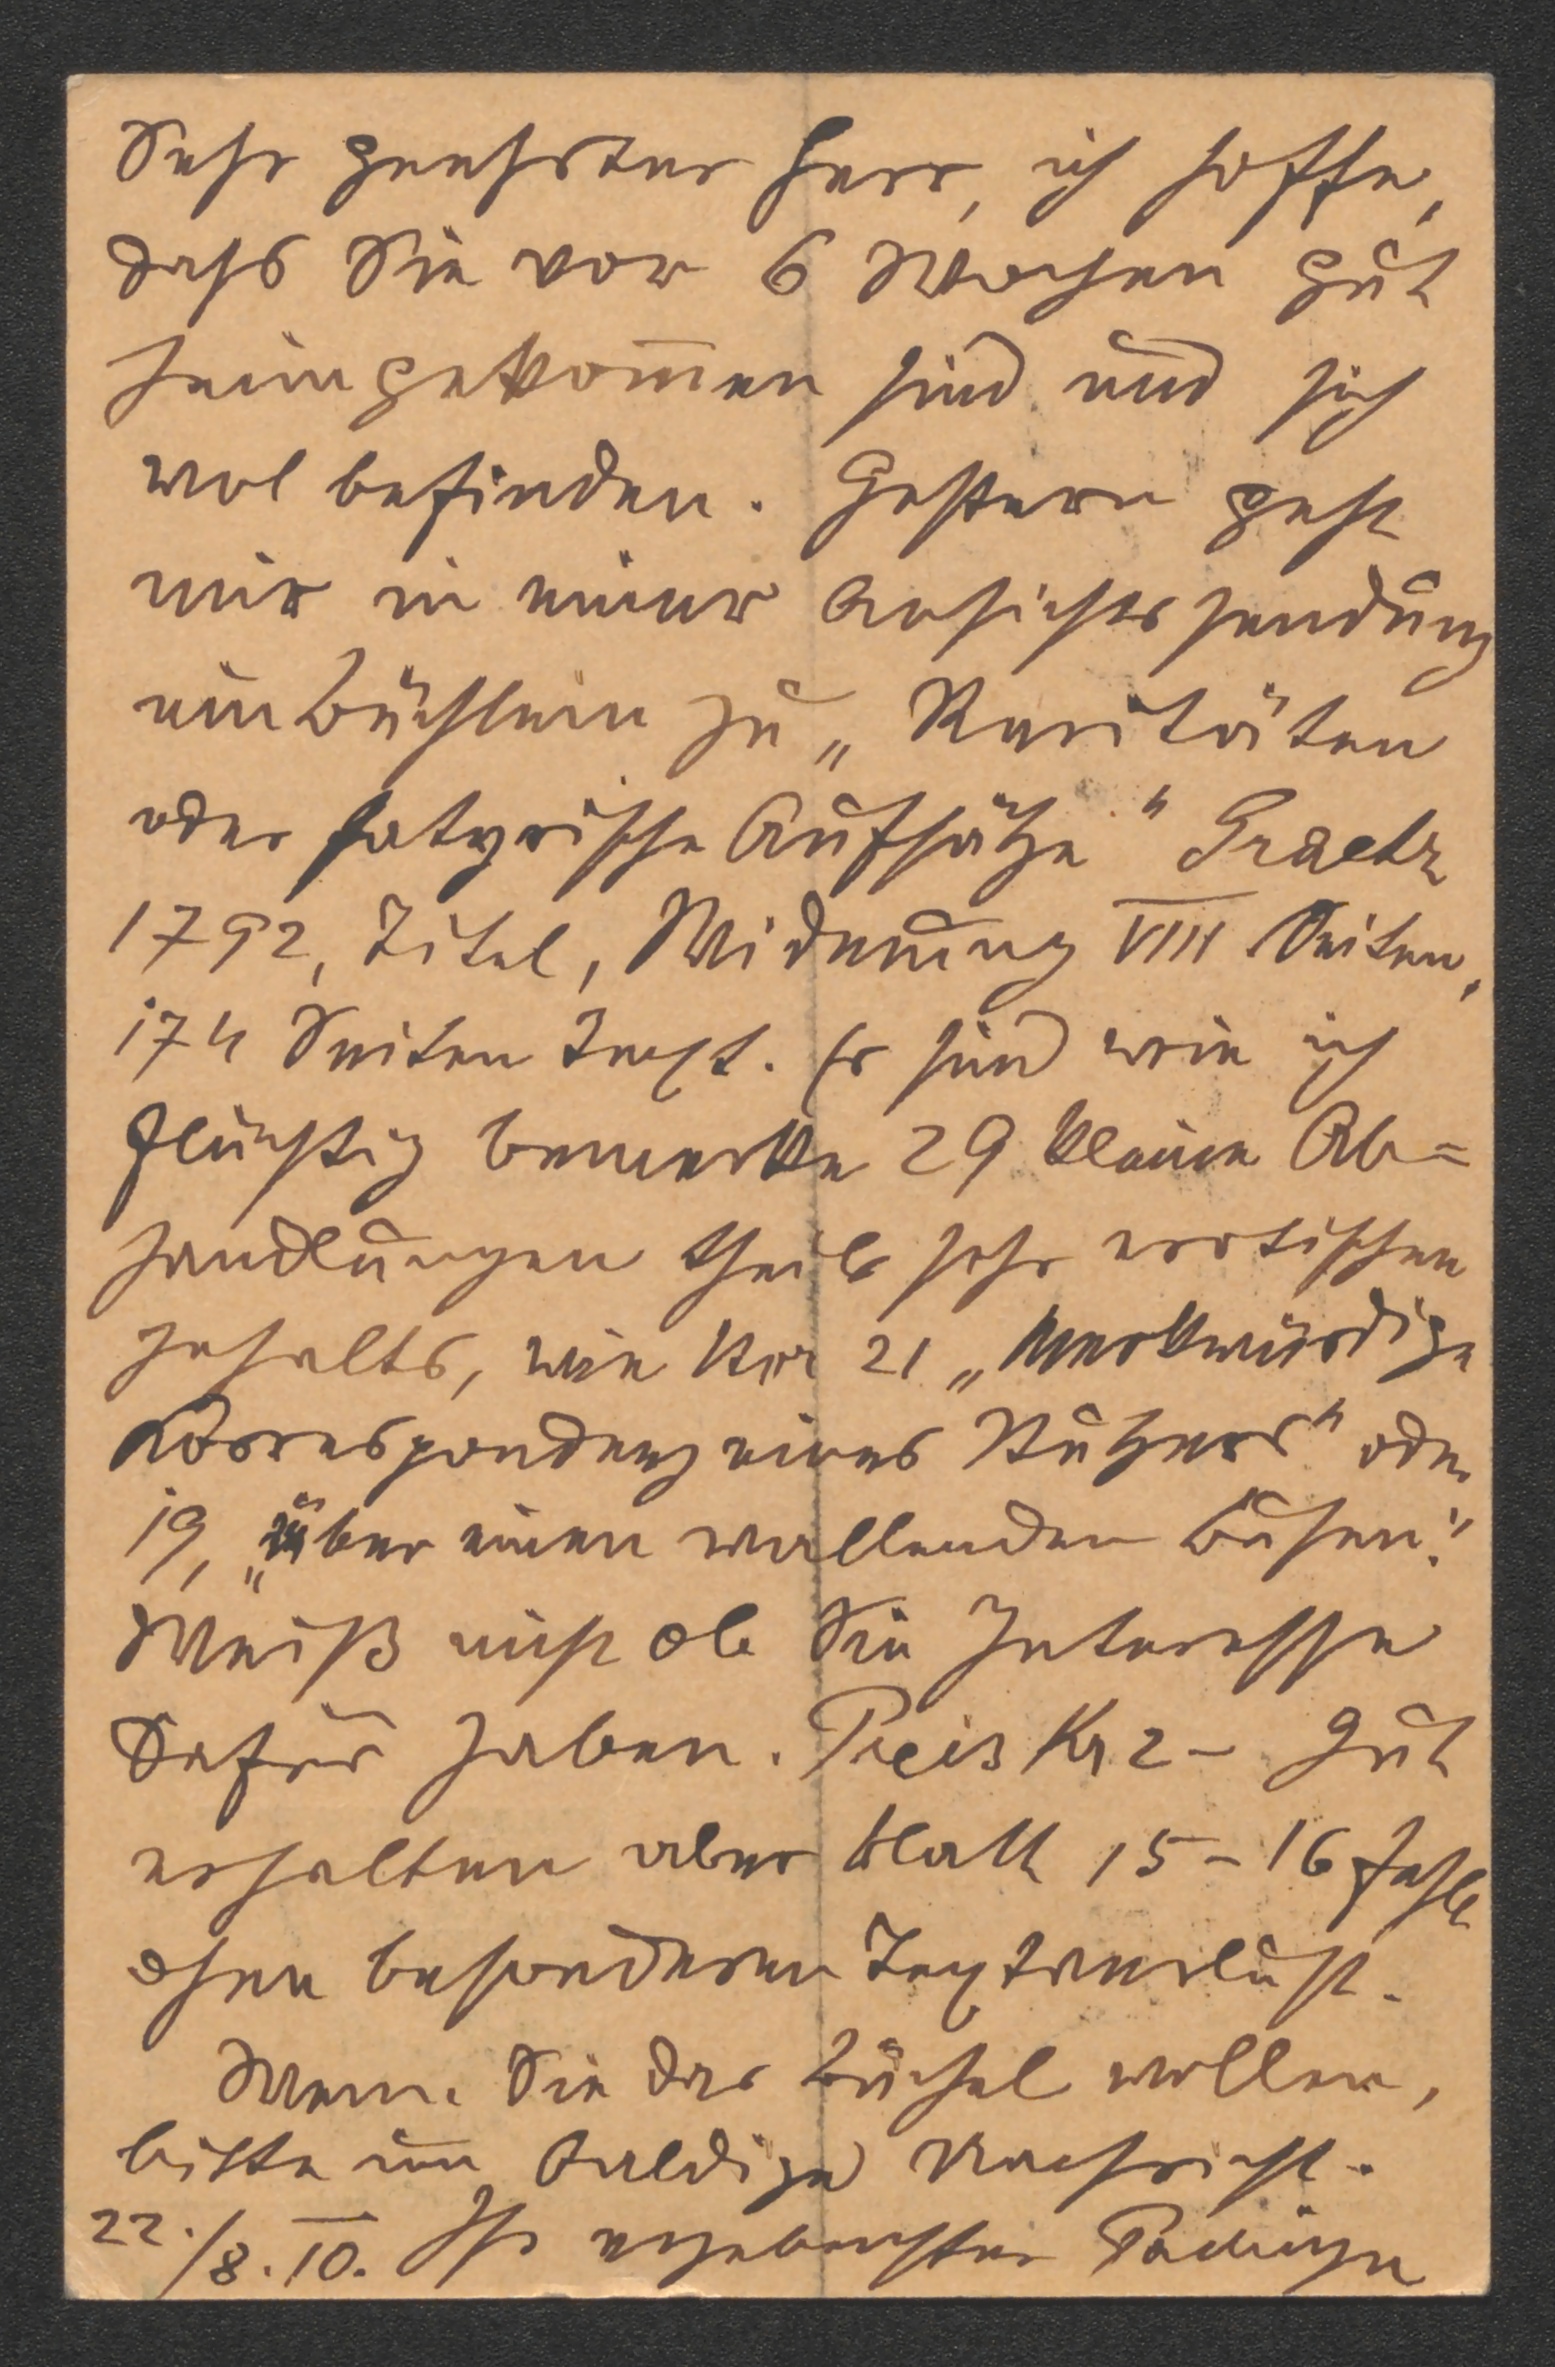 Sehr geehrter Herr, ich hoffe,
dass Sie vor 6 Wochen gut
heimgekom̅en sind und sich
wol befinden. Gestern geht
mir in einer Ansichtssendung
ein Büchlein zu „Raritäten
oder satyrische Aufsätze" Graetz
1792, Titel, Widmung VIII Seiten,
174 Seiten Text. Es sind wie ich
flüchtig bemerke 29 kleine Ab=
handlungen theils sehr erotischen
Gehalts, wie Nro 21 „Merkwürdige
Korrespondenz eines Stutzers" oder
19, „über einen wallenden Busen".
Weiß nicht ob Sie Interesse
dafür haben. Preis Kr 2 – Gut
erhalten aber Blatt 15–16 fehlt
ohne besonderen Textverlust.
Wenn Sie das Büchel wollen,
bitte um baldige Nachricht.
22./8. 10. Ihr ergebenster